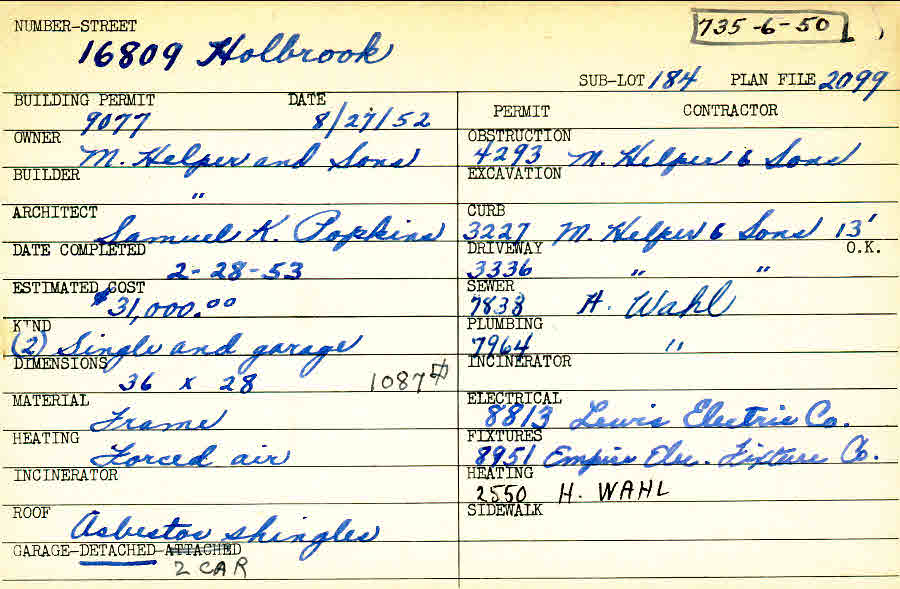 NUMBER-STREET
735-6-50
16809 Holbrook
SUB-LOT 184 PLAN FILE 2099
BUILDING PERMIT DATE
9077 8/27/52
OWNER
M. Helper and Sons
BUILDER
"
ARCHITECT
Samuel K. Popkins
DATE COMPLETED
2-28-53
ESTIMATED COST
$31,000.00
KIND
(2) Single and garage
DIMENSIONS
36 x 28 1087
MATERIAL
Frame
HEATING
Forced air
INCINERATOR
ROOF
Asbestos shingles
GARAGE-DETACHED-ATTACHED
2 CAR
PERMIT CONTRACTOR
OBSTRUCTION
4293 M. Helper & Sons
EXCAVATION
CURB
3227 M. Helper & Sons 13'
DRIVEWAY O.K.
3336 " "
SEWER
7838 H. Wahl
PLUMBING
7964 "
INCINERATOR
ELECTRICAL
8813 Lewis Electric Co.
FIXTURES
8951 Empire Elec. Fixture Co.
HEATING
2550 H. WAHL
SIDEWALK